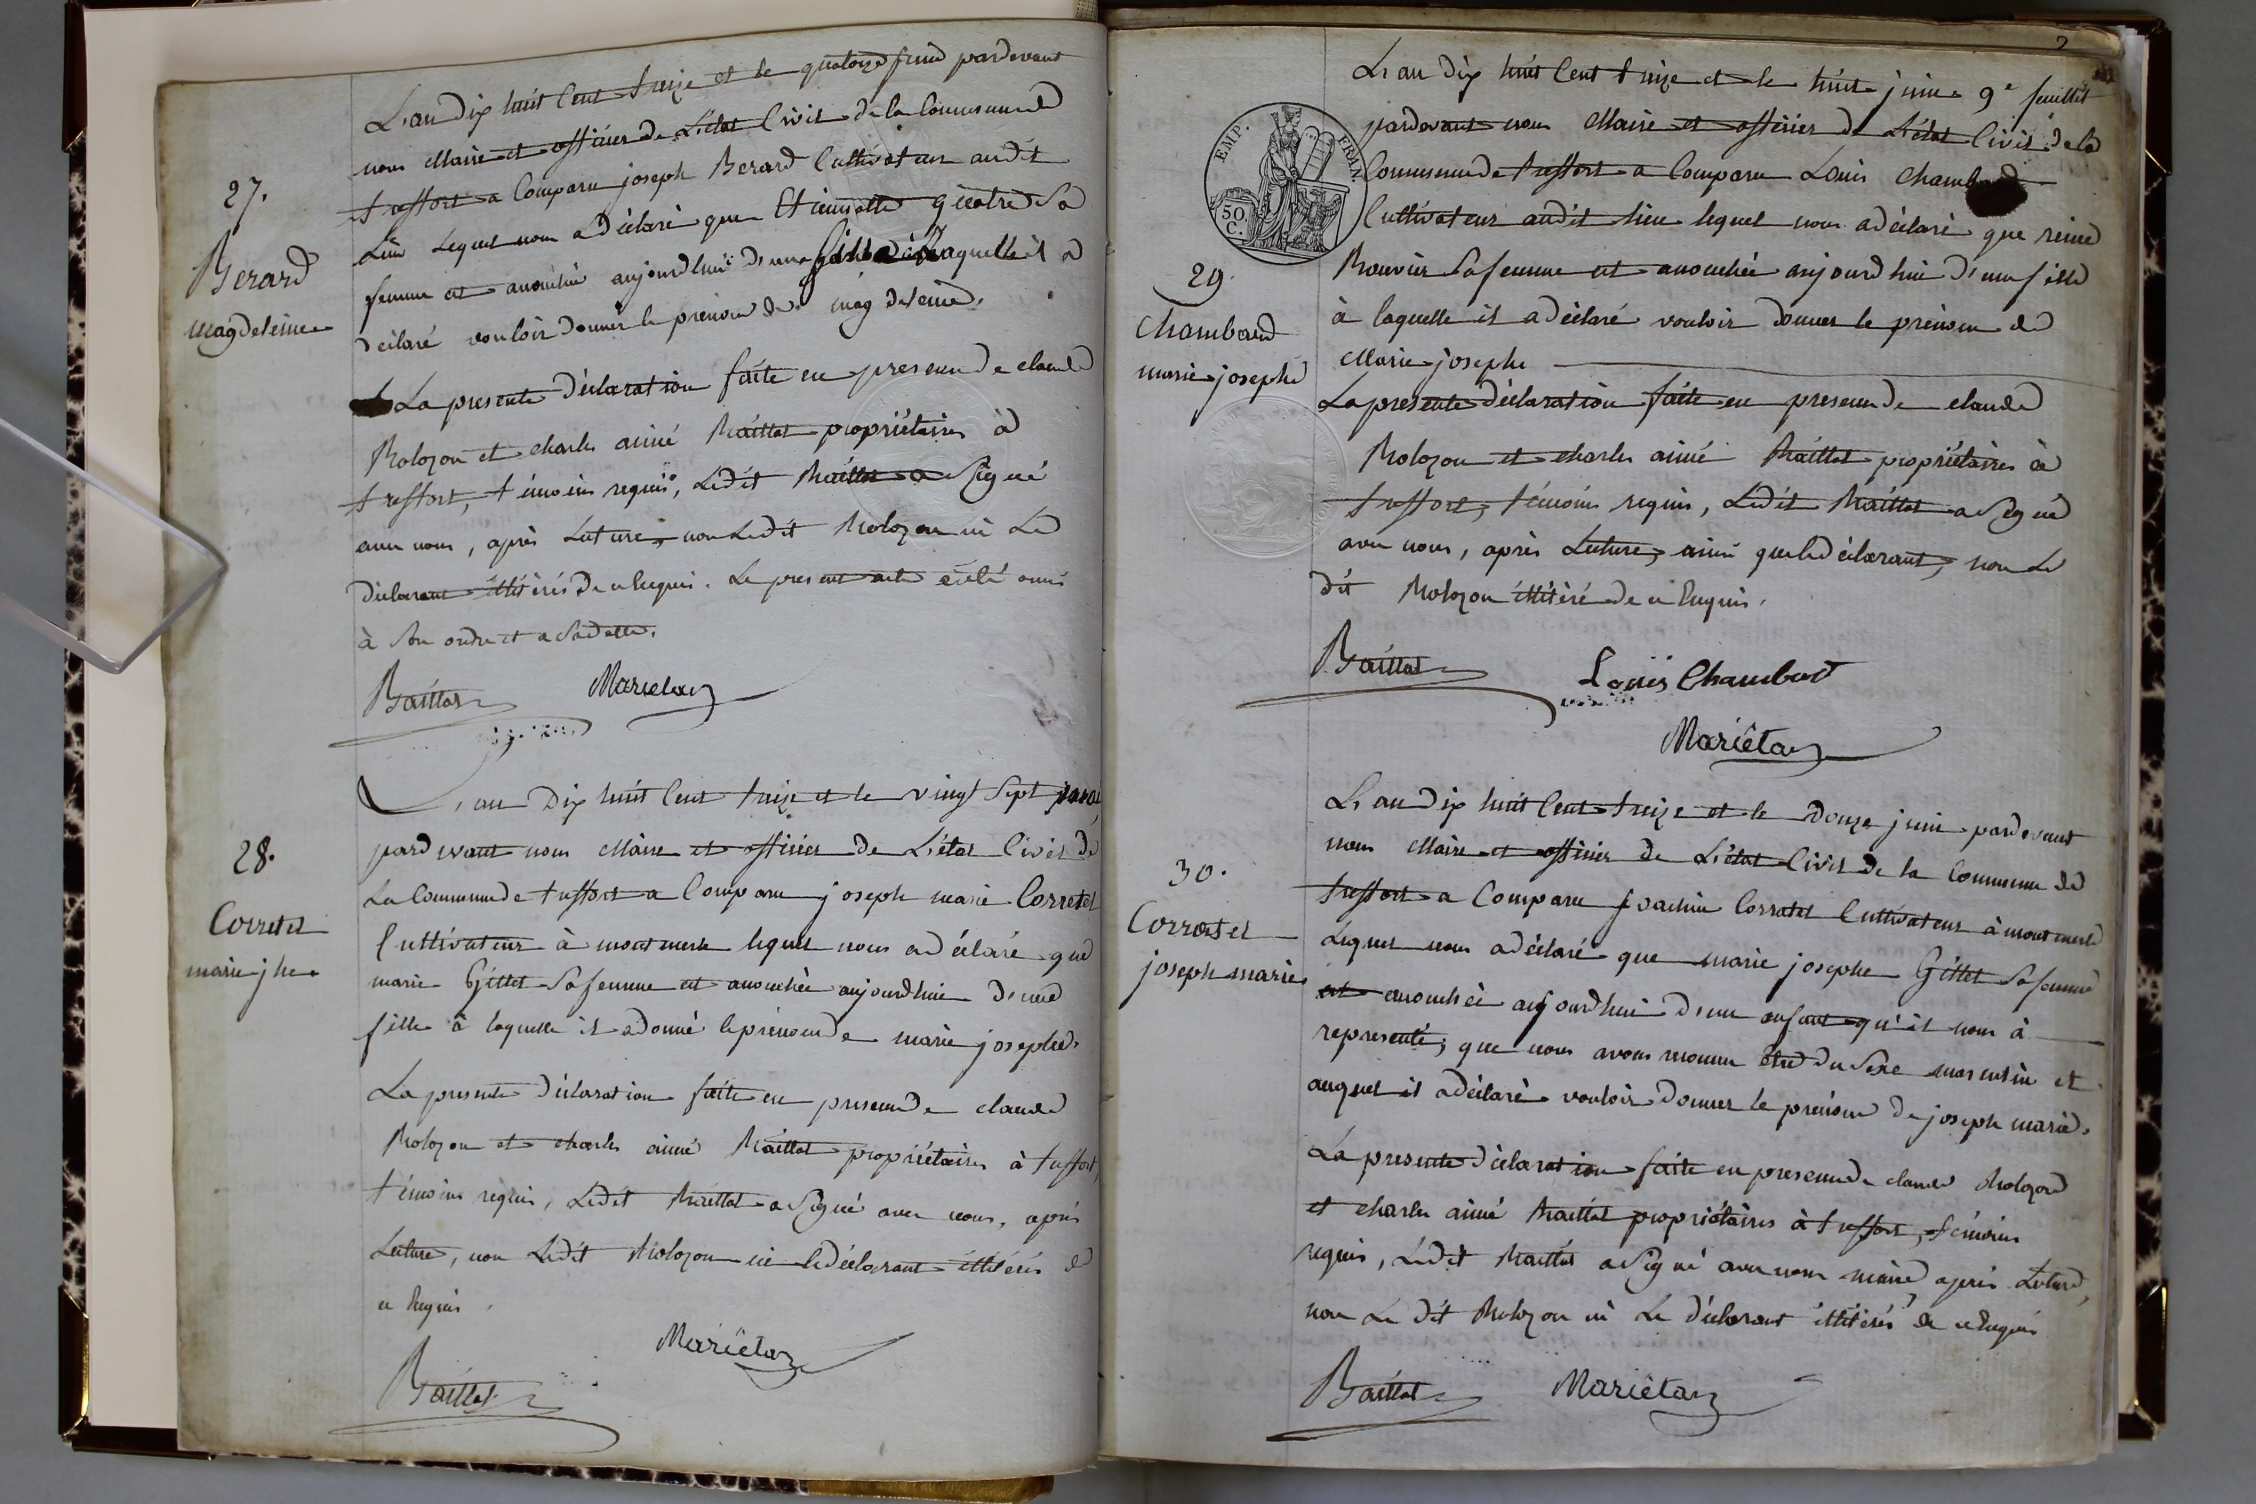 27.
Berard
magdeleine
L'an dix huit Cent treize et le quatorze pardevant
nous Maire et officier de L'état Civil de la Commune de
treffort a Comparu joseph Berard Cultivateur audit
Lieu Lequel nous a déclaré que Etiennette sa
femme est accouchée aujourd'hui d'une fille à laquelle il a
déclaré vouloir donner le prénom de magdeleine.
La presente déclaration faite en presence de claude
Molozon et charles aimé Baillat propriétaires à
treffort, témoins requis, Ledit Baillat a Signé
avec nous, après Lecture, non Ledit Molozon ni Le
déclarant illitérés de ce Enquis. Le present acte omis
à Son ordre et a Sa datte.
Baillat Mariétan
28.
Corretel
marie jhe
L'an Dix huit Cent treize et le vingt Sept
pardevant nous Maire et officier de L'état Civil de
La Commune de treffort a Comparu joseph marie Corretel
Cultivateur à montmerle lequel nous a déclaré que
marie Gillet Sa femme est accouchée aujourdhuie d'une
fille à laquelle il a donné le prénom de marie josephe.
La presente déclaration faite en presence de claude
Molozon et charles aimé Baillat propriétaires à treffort,
témoins requis, Ledit Baillat a Signé avec nous, après
Lecture, non Ledit Molozon ni le déclarant illitérés de
ce Enquis.
Mariétan
Baillat
2
EMP. FRAN.
50.
C.
29.
Chambard
marie josephe
L'an dix huit Cent treize et le huit juin 9e feuillet
pardevant nous Maire et officier de L'état Civil de la
Commune de treffort a Comparu Louis Chambard
Cultivateur audit lieu lequel nous a déclaré que reine
Bouvier Sa femme est accouchée aujourdhui d'une fille
à laquelle il a déclaré vouloir donner le prénom de
Marie josephe
La presente déclaration faite en presence de claude
Molozon et charles aimé Baillat propriétaires à
treffort, témoins requis, Ledit Baillat a Signé
avec nous, après Lecture, ainsi que le déclarant, non Le
dit Molozon illitéré de ce Enquis.
Baillat Louis Chambard
Mariétan
30.
Corratel
joseph marie
L'an dix huit Cent treize et le douze juin pardevant
nous Maire et officier de L'état Civil de la Commune de
treffort a Comparu Joachim Corratel Cultivateur à montmerle
Lequel nous a déclaré que marie josephe Gillet Sa femme
est accouchée aujourdhui d'un enfant qu'il nous à
representé, que nous avons reconnu être du Sexe masculin et
auquel il a déclaré vouloir donner le prénom de joseph marie.
La presente déclaration faite en presence de claude Molozon
et charles aimé Baillat propriétaires à treffort, témoins
requis, Ledit Baillat a Signé avec nous maire, après Lecture,
non Le dit Molozon ni Le déclarant illitérés de ce Enquis
Baillat Mariétan